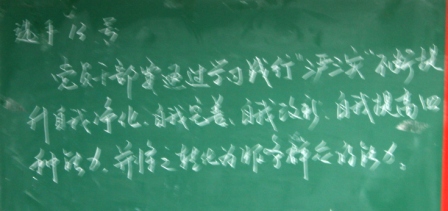 选手 12 号
党员干部要通过学习践行"三严三实"不断提
升自我净化、自我完善、自我革新、自我提高四
种能力，并将之转化为服务群众的能力。